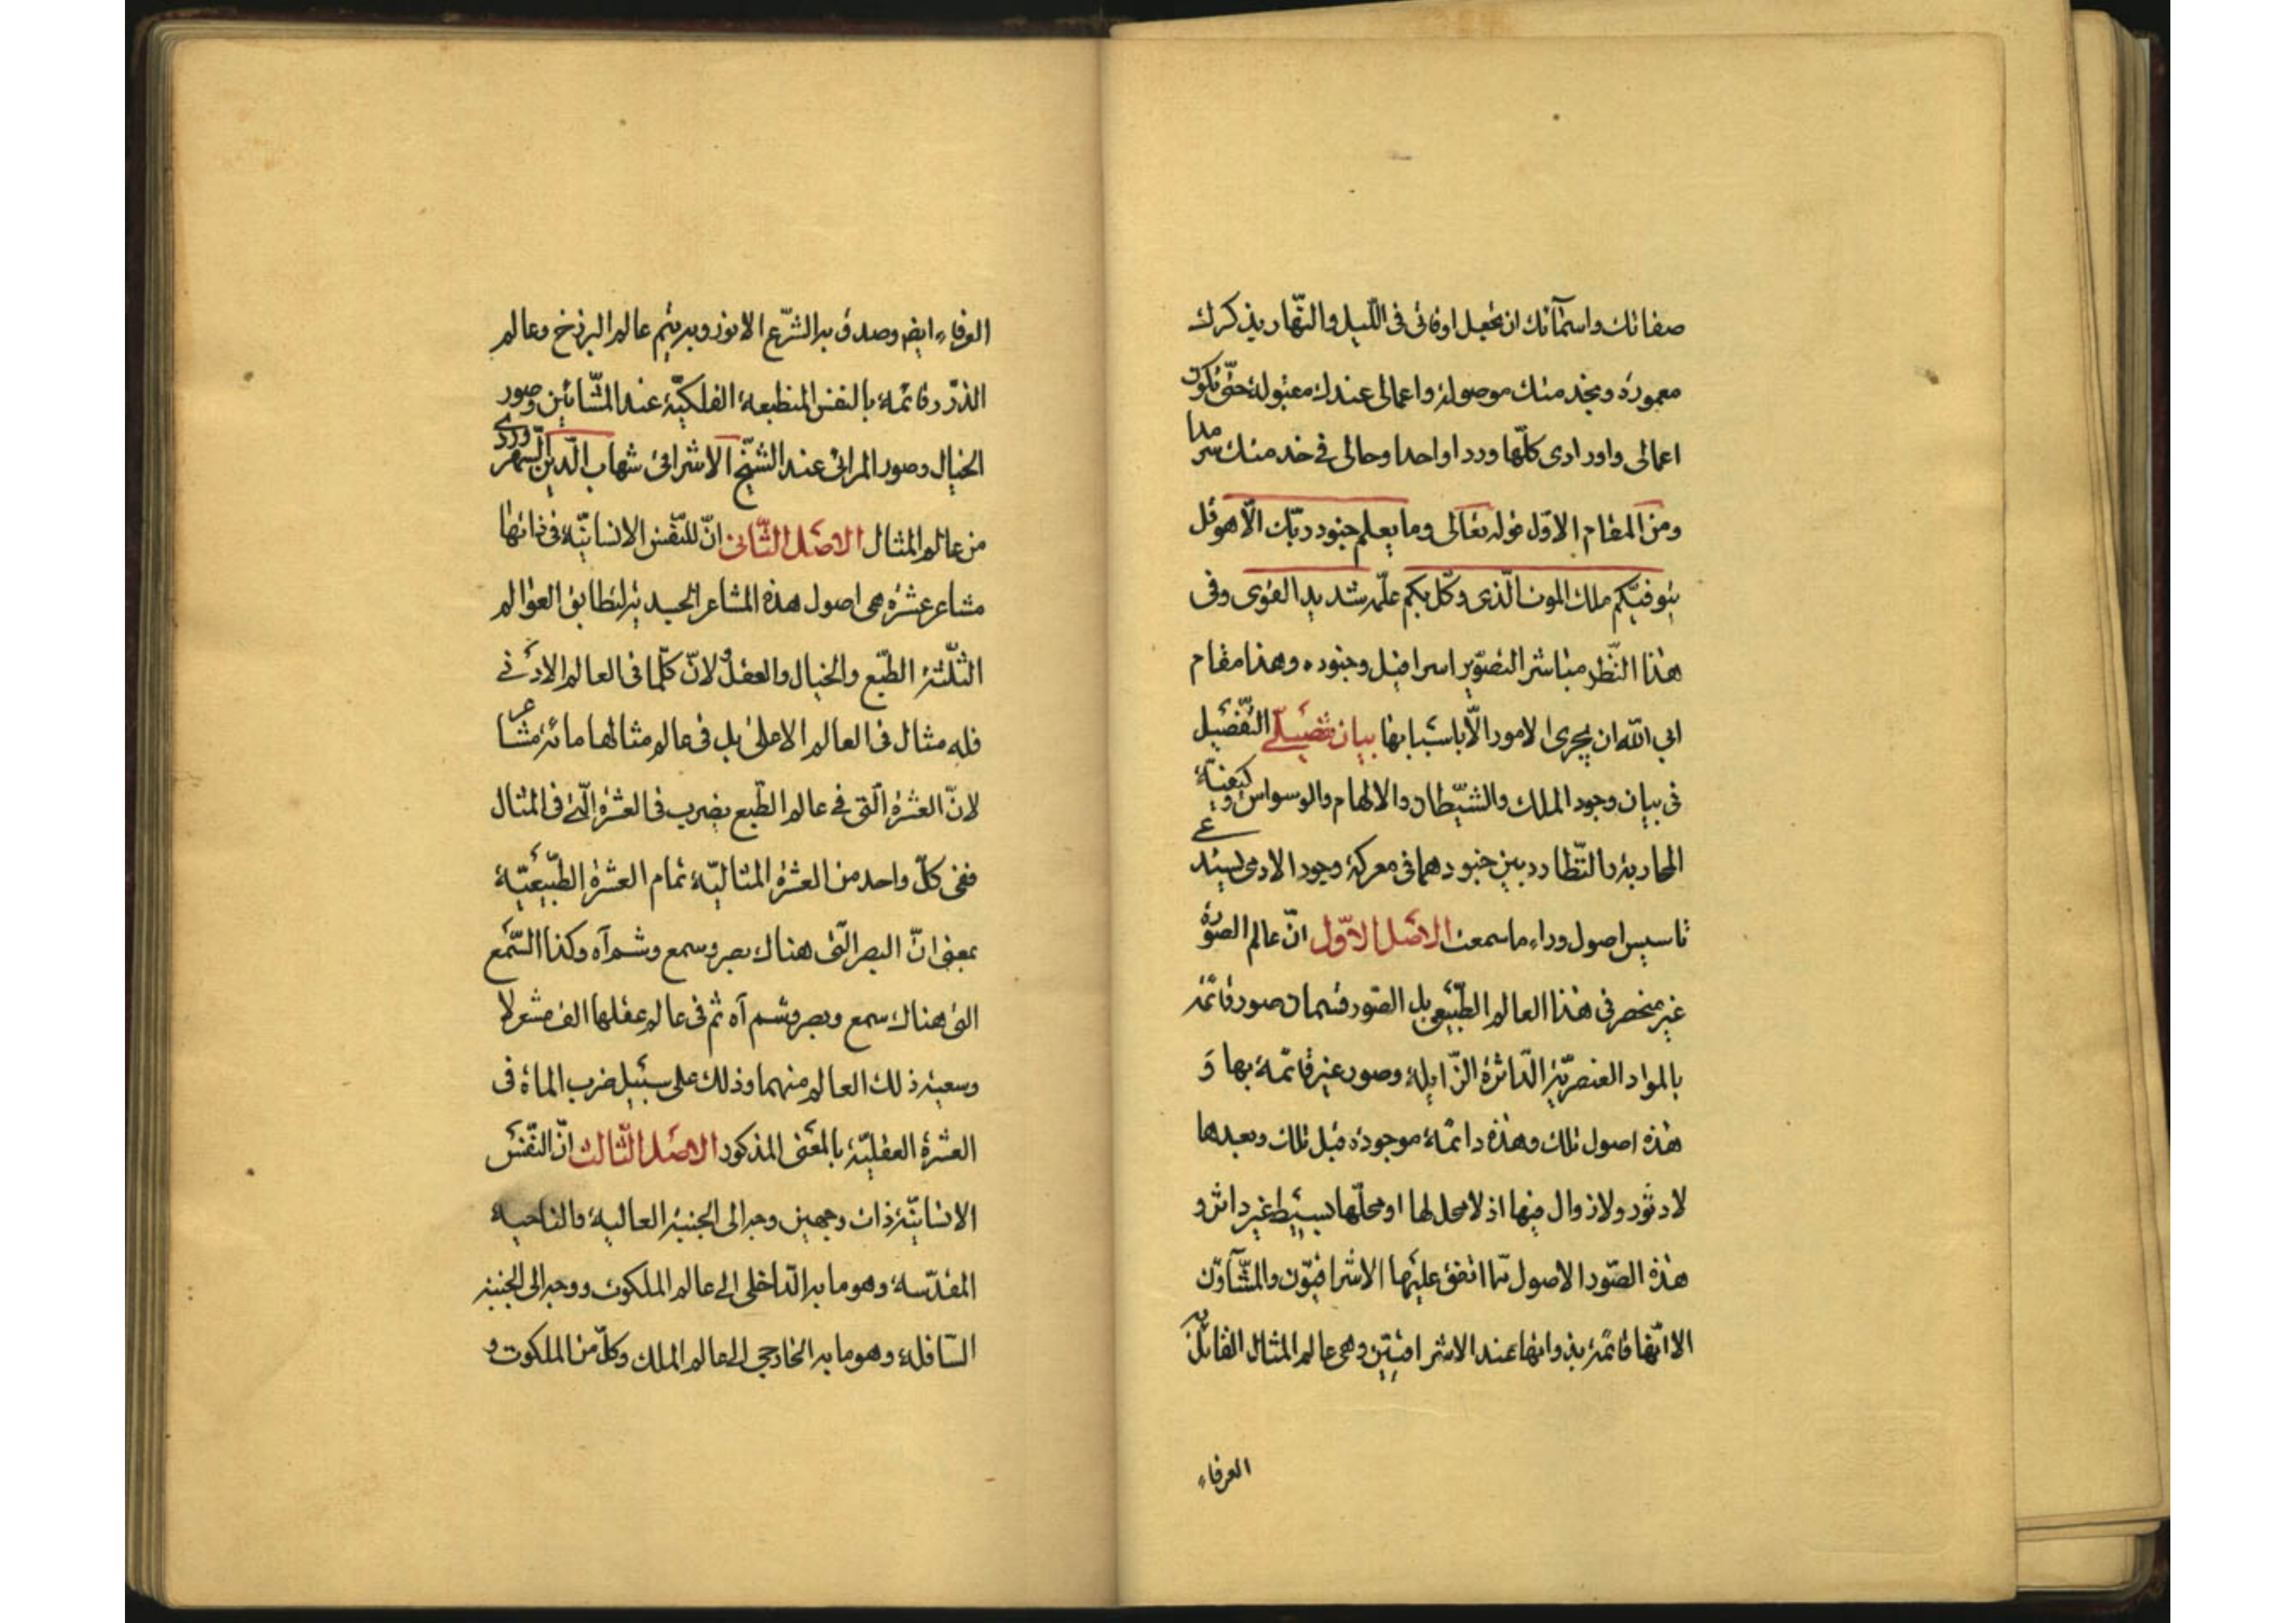 صفاتك واسمائك ان تجعل اوقاتی فی اللّیل والنّهار بذكرك
معمورة وبخدمتك موصولة واعمالی عندك مقبولة حتّی تكون
اعمالی واورادی كلّها وردا واحدا وحالی فی خدمتك سرمدا
ومن المقام الاوّل قوله تعالی وما یعلم جنود ربّك الّا هو قل
یتوفّیكم ملك الموت الّذی وكّل بكم علّمه شدید القوی وفی
هذا النّظر مباشر التصویر اسرافیل وجنوده وهذا مقام
ابی الله ان یجری الامور الّا باسبابها بیان تفصیلی التّفصیل
فی بیان وجود الملك والشّیطان والالهام والوسواس وكیفیّة
المحاربة والتّطارد بین جنودهما فی معركة وجود الادمی یستدعی
تاسیس اصول وراء ما سمعت الاصل الاوّل انّ عالم الصّورة
غیر منحصر فی هذا العالم الطّبیعی بل الصّور قسمان صور قائمة
بالمواد العنصریّة الدّاثرة الزّایلة وصور غیر قائمة بها وَ
هذه اصول تلك وهذه دائمة موجودة قبل تلك وبعدها
لا دثور ولا زوال فیها اذ لا محل لها او محلّها بسیط غیر داثر و
هذه الصّور الاصول ممّا اتفق علیها الاشراقیّون والمشّآؤن
الا انّها قائمة بذواتها عند الاشراقیّین وهی عالم المثال القائل به
العرفاء
العرفاء ایضا وصدق به الشّرع الانور وبه یتم عالم البرزخ وعالم
الذّر وقائمة بالنفس المنطبعة الفلكیّة عند المشّائین وصور
الخیال وصور المرائی عند الشّیخ الاشراقی شهاب الدّین السّهروردی
من عالم المثال الاصل الثّانی انّ للنّفس الانسانیّة فی ذاتها
مشاعر عشرة هی اصول هذه المشاعر الجسدیة لتطابق العوالم
الثلثة الطّبع والخیال والعقل ولانّ كلّما فی العالم الادنی
فله مثال فی العالم الاعلی بل فی عالم مثالها مائة مشاعر
لانّ العشرة الّتی فی عالم الطّبع یضرب فی العشرة الّتی فی المثال
ففی كلّ واحد من العشرة المثالیّة تمام العشرة الطّبیعیّة
بمعنی انّ البصر الّتی هناك بصر وسمع وشم آه وكذا السّمع
التی هناك سمع وبصر وشم آه ثم فی عالم عقلها الف مشعر لا
وسعیة ذلك العالم منهما وذلك علی سبیل ضرب الماة فی
العشرة العقلیّة بالمعنی المذكور الاصل الثّالث انّ النّفس
الانسانیّة ذات وجهین وجه الی الجنبة العالیة والناحیة
المقدّسة وهو ما به الدّاخلی الی عالم الملكوت ووجه الی الجنبة
السّافلة وهو ما به الخارجی الی عالم الملك وكلّ من الملكوت و